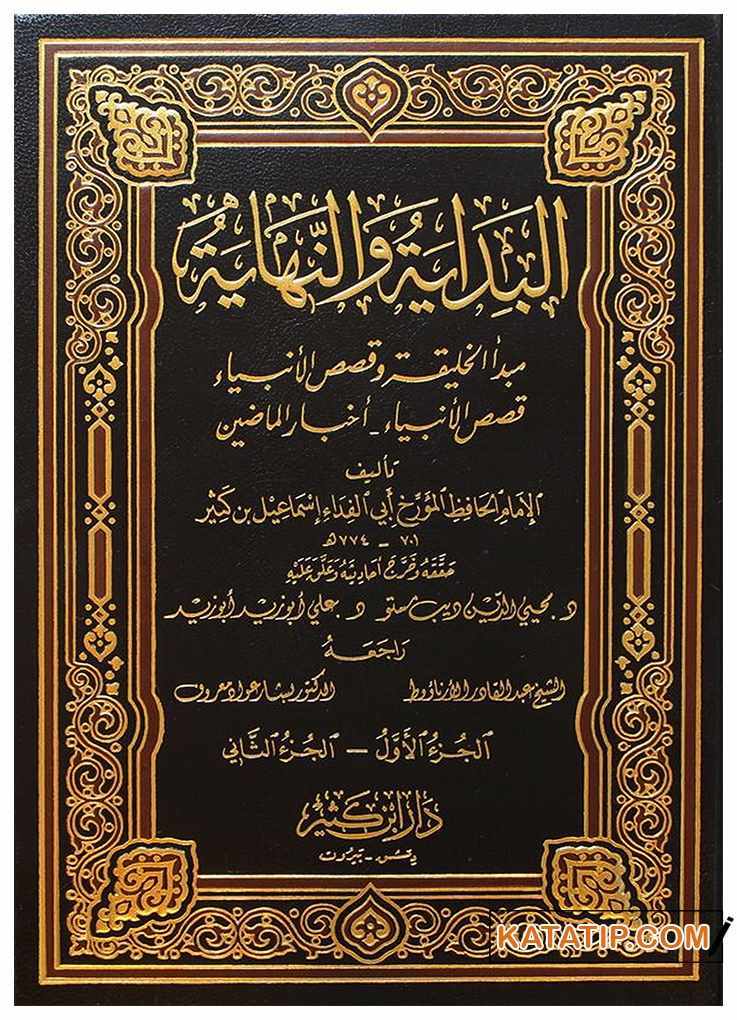 البَدَايَةُ وَالنِّهَايَةُ
مبدأ الخليقة وقصص الأنبياء
قصص الأنبياء - أخبار الماضين
تأليف
الإمام الحافظ المؤرخ أبي الفداء إسماعيل بن كثير
٧٠١ - ٧٧٤ هـ
حققه وخرج أحاديثه وعلق عليه
د. محيي الدين ديب مستو د. علي أبو زيد أبو زيد
راجعه
الشيخ عبد القادر الأرناؤوط الدكتور بشار عواد معروف
الجزء الأول - الجزء الثاني
دار ابن كثير
دمشق - بيروت
KATATIP.COM